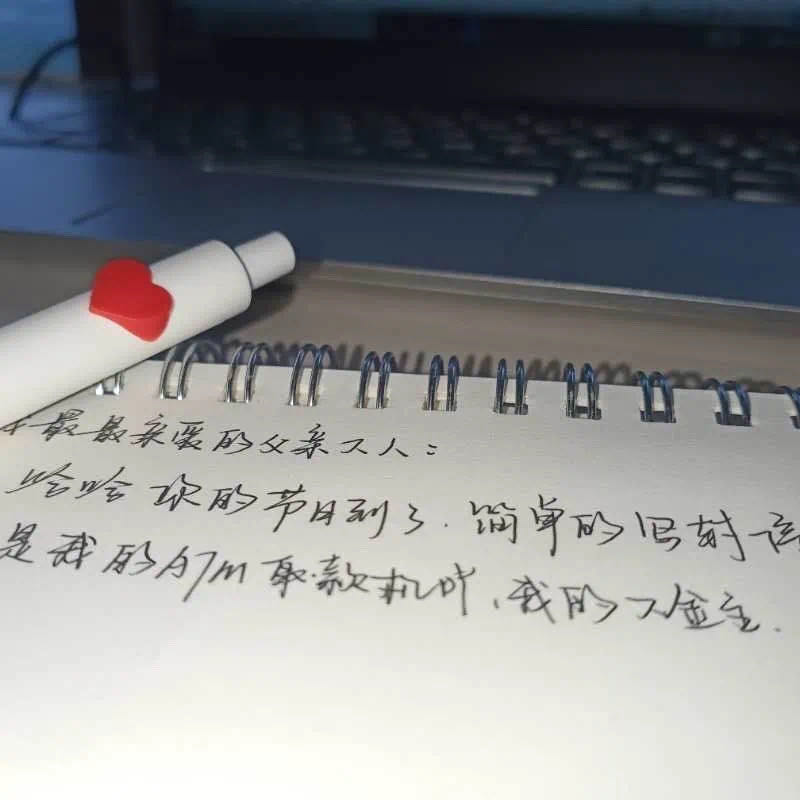 最最亲爱的父亲大人：
哈哈 你的节日到了。简单的写封信
是我的ATM取款机吖、我的大金主.